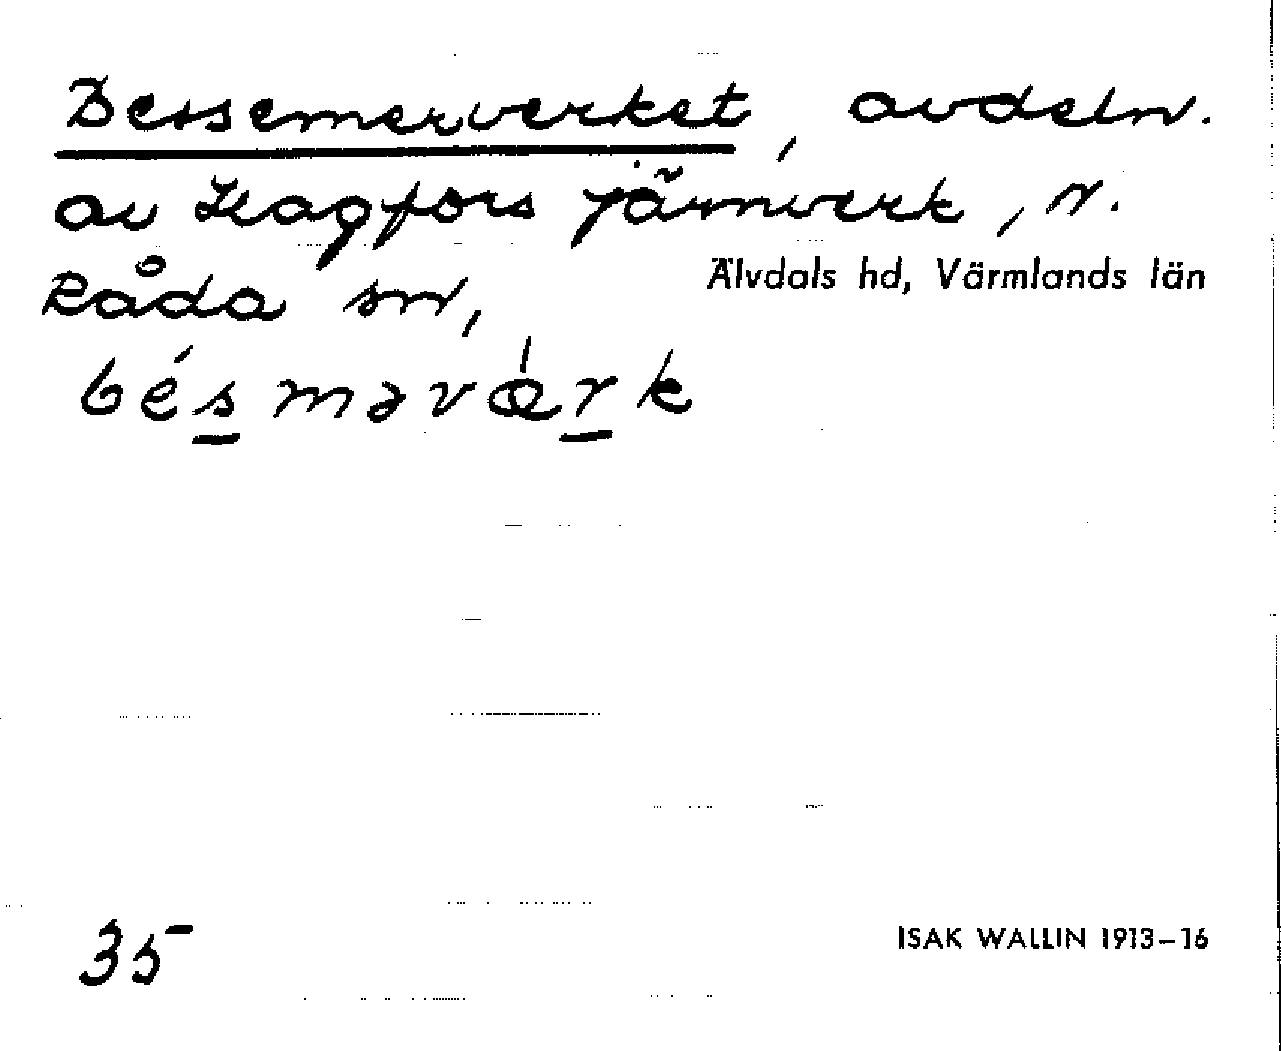 Bessemerverket, avdeln.
av Hagfors järnverk, N.
Råda sn,
Älvdals hd, Värmlands län
bésməvǽrk
35
ISAK WALLIN 1913–16